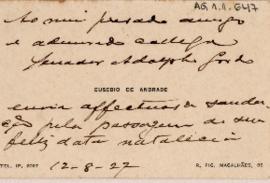 AG.1.1.647
Ao meu presado amigo
e admirado collega
Senador Adolpho Gordo
EUSEBIO DE ANDRADE
envia affectuosas sauda-
ções pela passagem de seu
feliz data natalicia
12-8-27
R. PIC. MAGALHÃES,